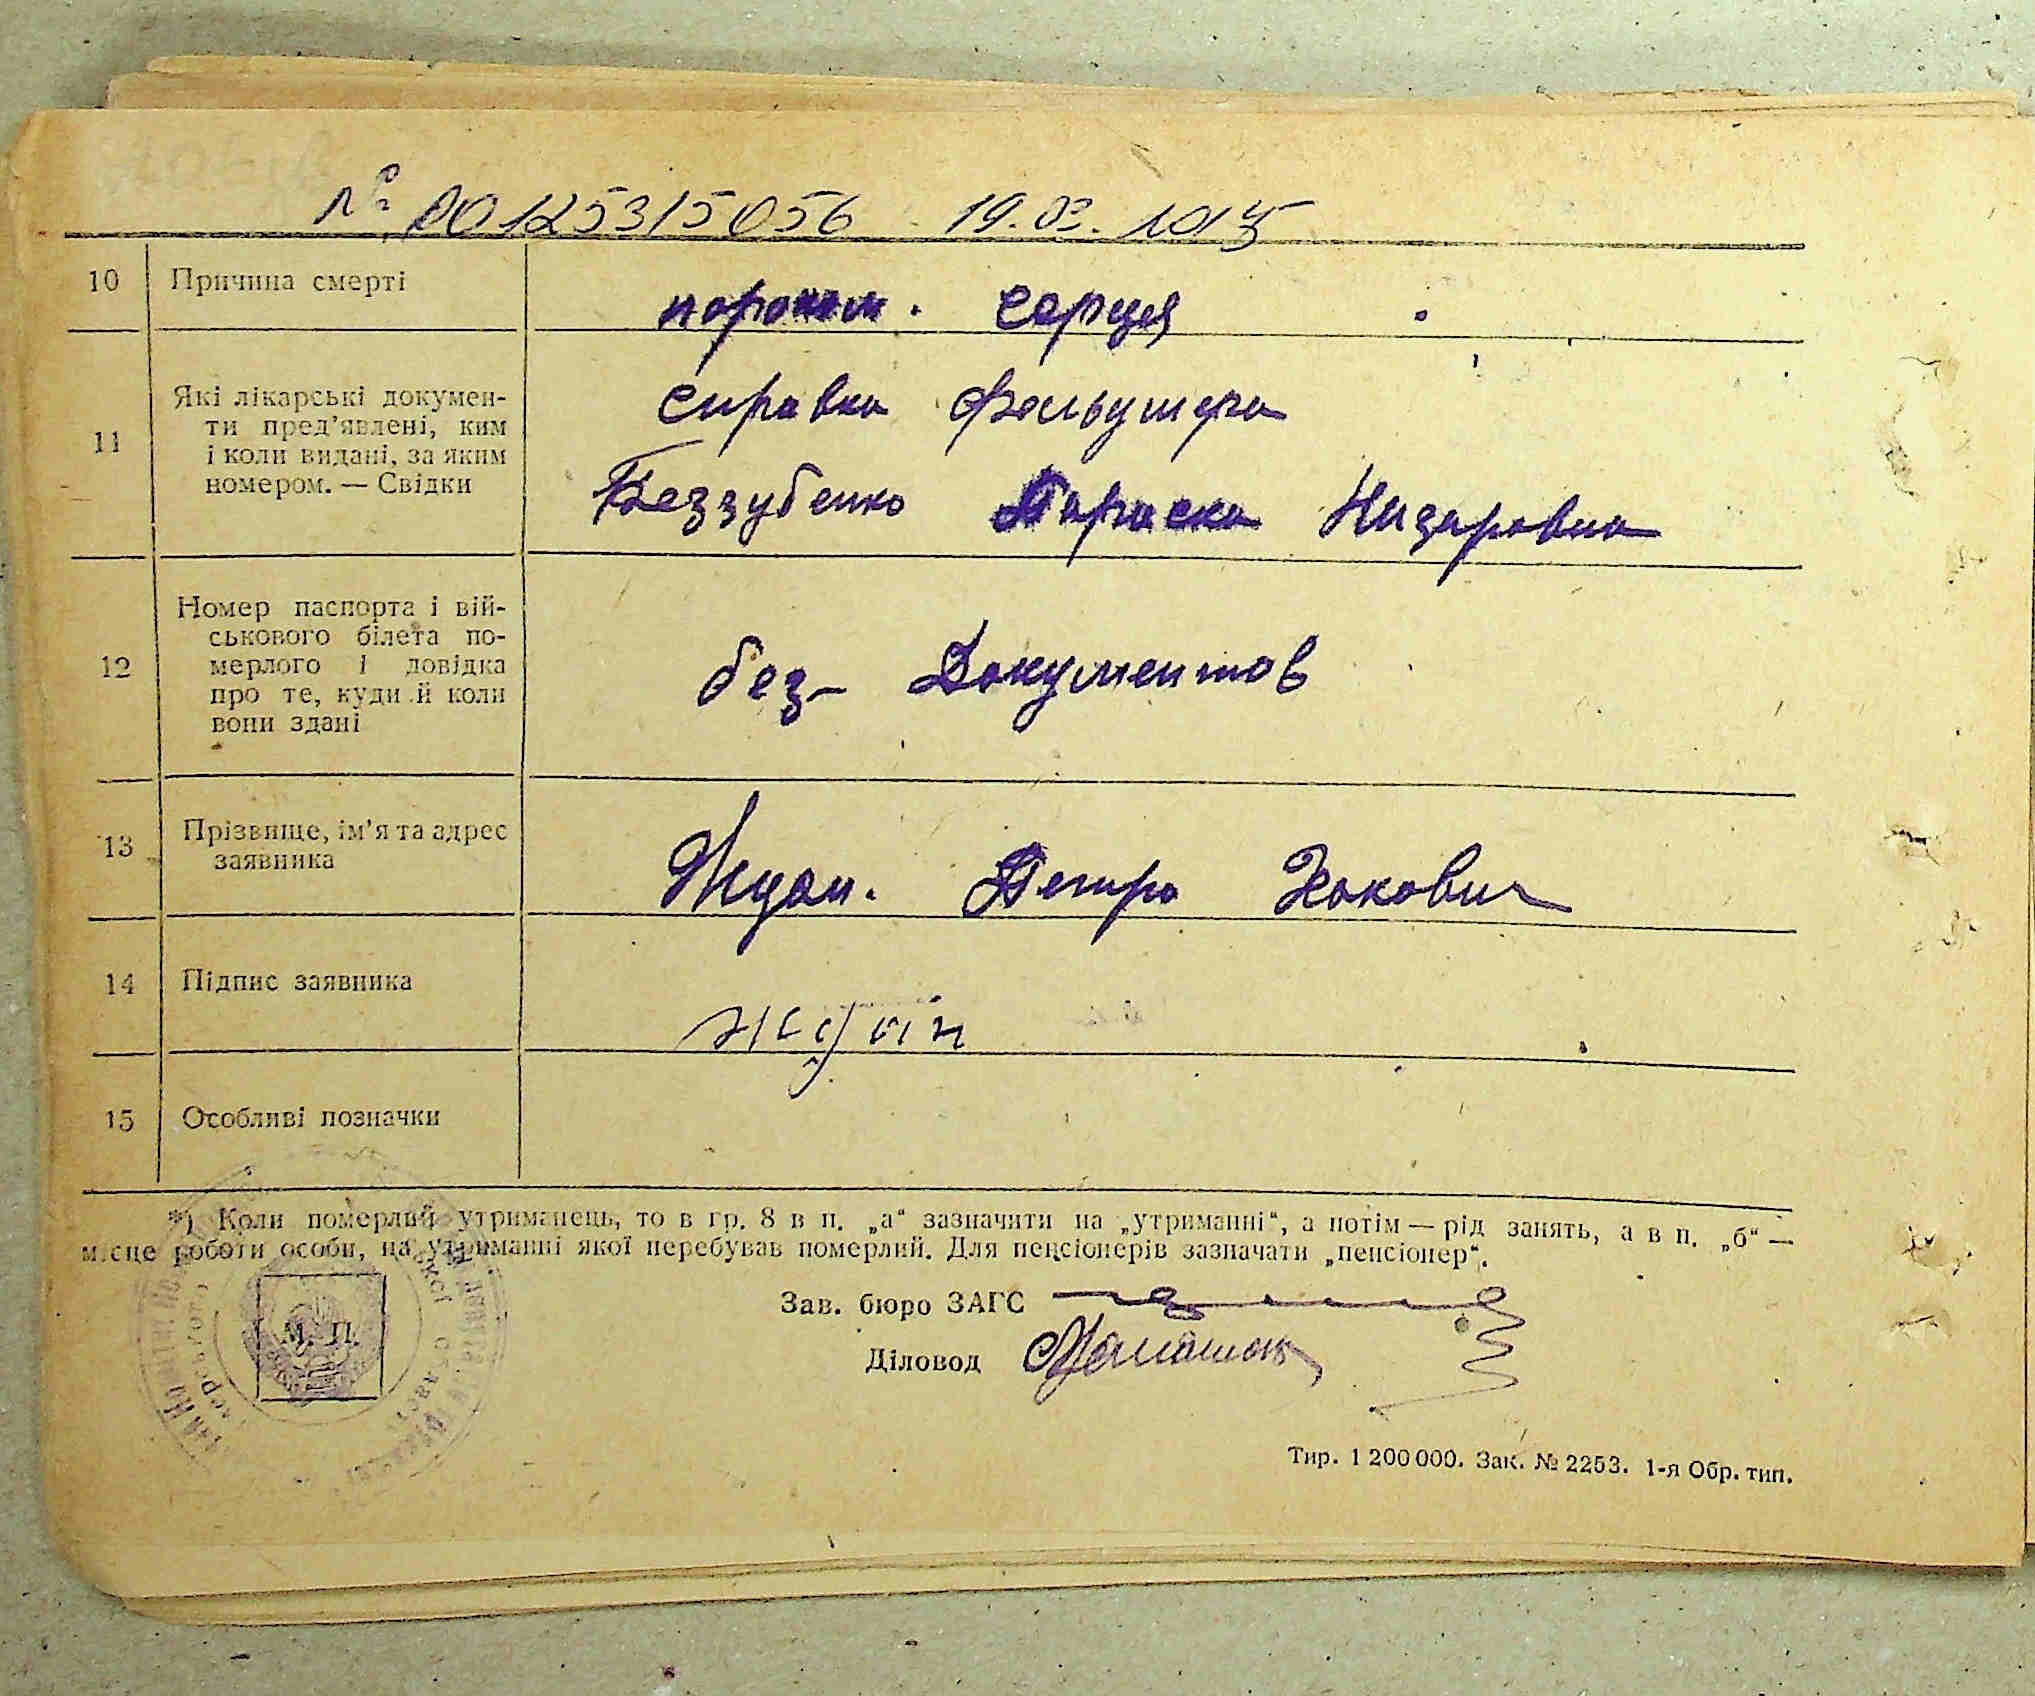 № 00125315056 19.03.2015
10 Причина смерті
порокси. серця
11 Які лікарські докумен-
ти пред'явлені, ким
і коли видані, за яким
номером. — Свідки
справка фельдшера
Беззубенко Параска Назаровна
12 Номер паспорта і вій-
ськового білета по-
мерлого і довідка
про те, куди й коли
вони здані
без- документов
13 Прізвище, ім'я та адрес
заявника
Ждан. Петро Якович
14 Підпис заявника
ждан
15 Особливі позначки
*) Коли померлий утриманець, то в гр. 8 в п. „а“ зазначити на „утриманні“, а потім — рід занять, а в п. „б“ —
місце роботи особи, на утриманні якої перебував померлий. Для пенсіонерів зазначати „пенсіонер“.
М. П.
Зав. бюро ЗАГС
Діловод
Тир. 1 200 000. Зак. № 2253. 1-я Обр. тип.